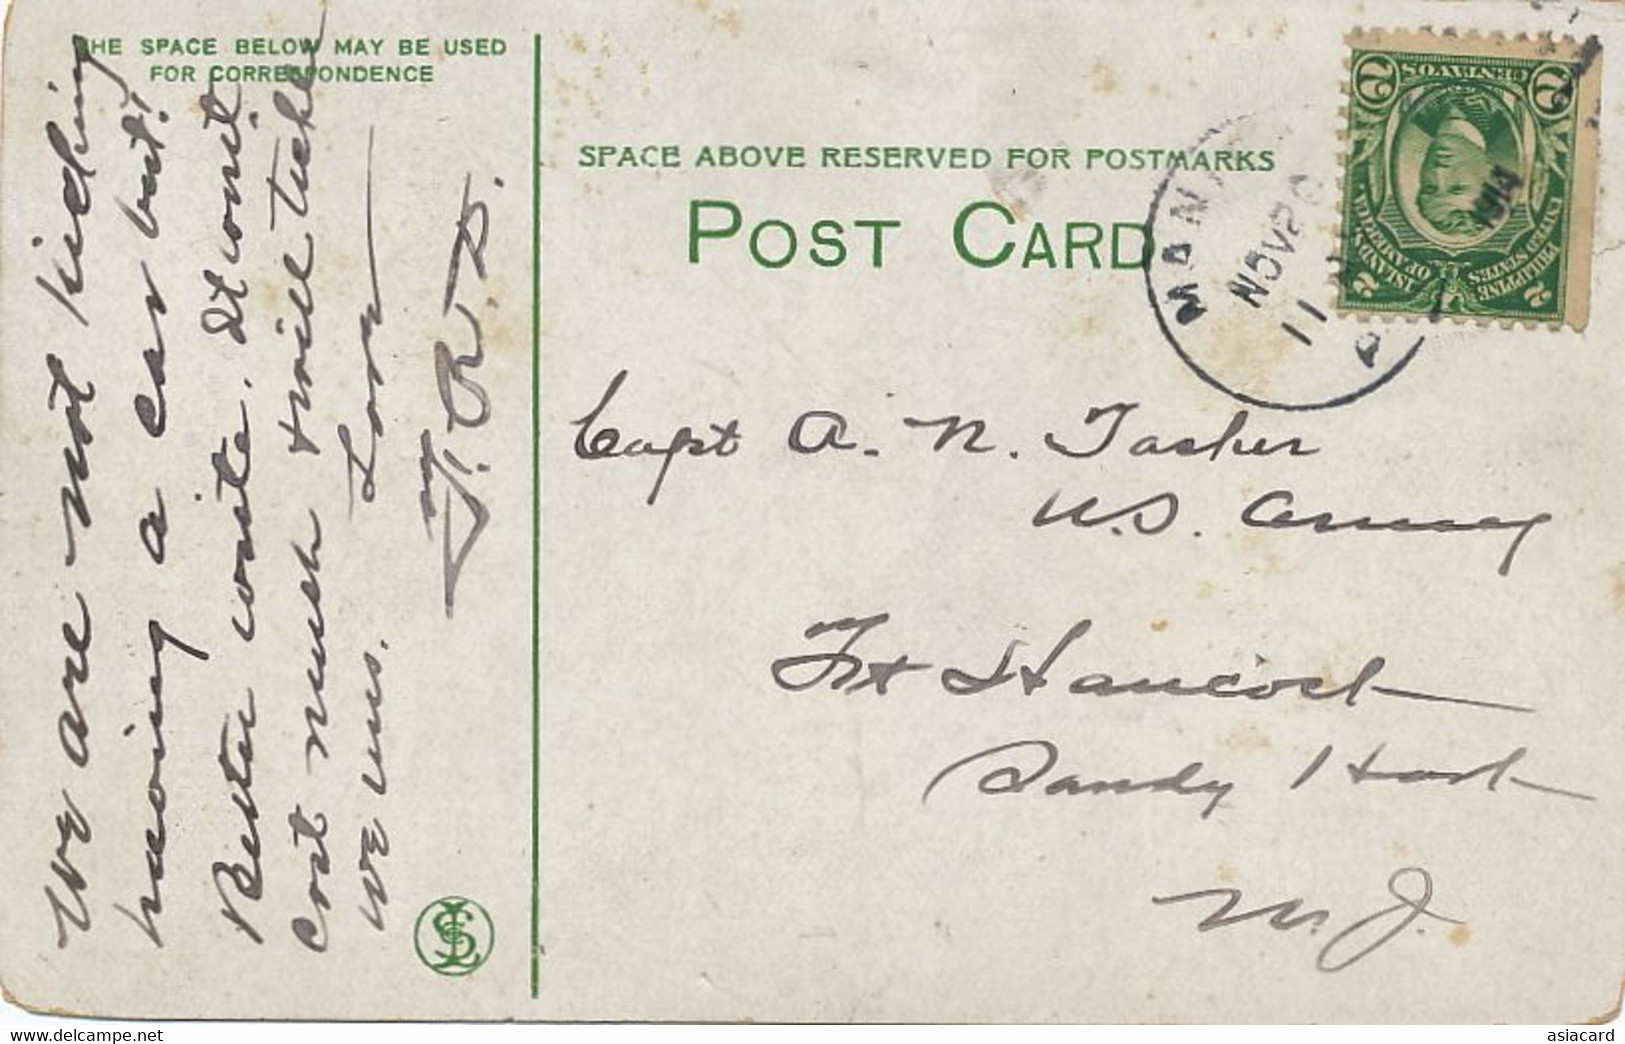 THE SPACE BELOW MAY BE USED
FOR CORRESPONDENCE
We are not kicking
having a car but!
Better write. It won't
cost much & will tickle
we uns.
Love
J. R. D.
SPACE ABOVE RESERVED FOR POSTMARKS
POST CARD
MAN
NOV 20
11
1914
2 CENTAVOS 2
PHILIPPINE ISLANDS
UNITED STATES OF AMERICA
2 2
Capt A. N. Tasker
U.S. Army
Ft Hancock
Sandy Hook
N. J.
www.delcampe.net
asiacard